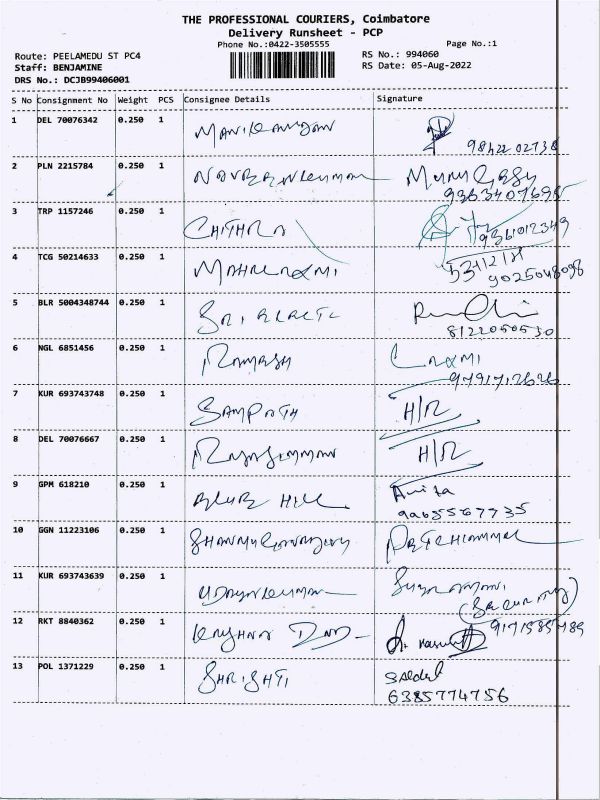 THE PROFESSIONAL COURIERS, Coimbatore
Delivery Runsheet - PCP
Phone No.:0422-3505555
Page No.:1
Route: PEELAMEDU ST PC4
RS No.: 994060
Staff: BENJAMINE
RS Date: 05-Aug-2022
DRS No.: DCJB99406001
S No Consignment No Weight PCS Consignee Details Signature
1 DEL 70076342 0.250 1 MANIKANDAN
9842202738
2 PLN 2215784 0.250 1 NAVEENKUMAR MURUGESH
9363407695
3 TRP 1157246 0.250 1 CHITHRA
9361012349
4 TCG 50214633 0.250 1 MAHALAXMI
9025048098
5 BLR 5004348744 0.250 1 SRI
8122050530
6 NGL 6851456 0.250 1 RAMESH LAXMI
9791712626
7 KUR 693743748 0.250 1 SAMPATH H/R
8 DEL 70076667 0.250 1 H/R
9 GPM 618210 0.250 1 BLUE HILL Anita
9965567735
10 GGN 11223106 0.250 1 PETCHIAMMAL
11 KUR 693743639 0.250 1 UDAYAKUMAR
(SECURITY)
12 RKT 8840362 0.250 1 KRISHNA
9171585789
13 POL 1371229 0.250 1 SHRISHTI
6385774756